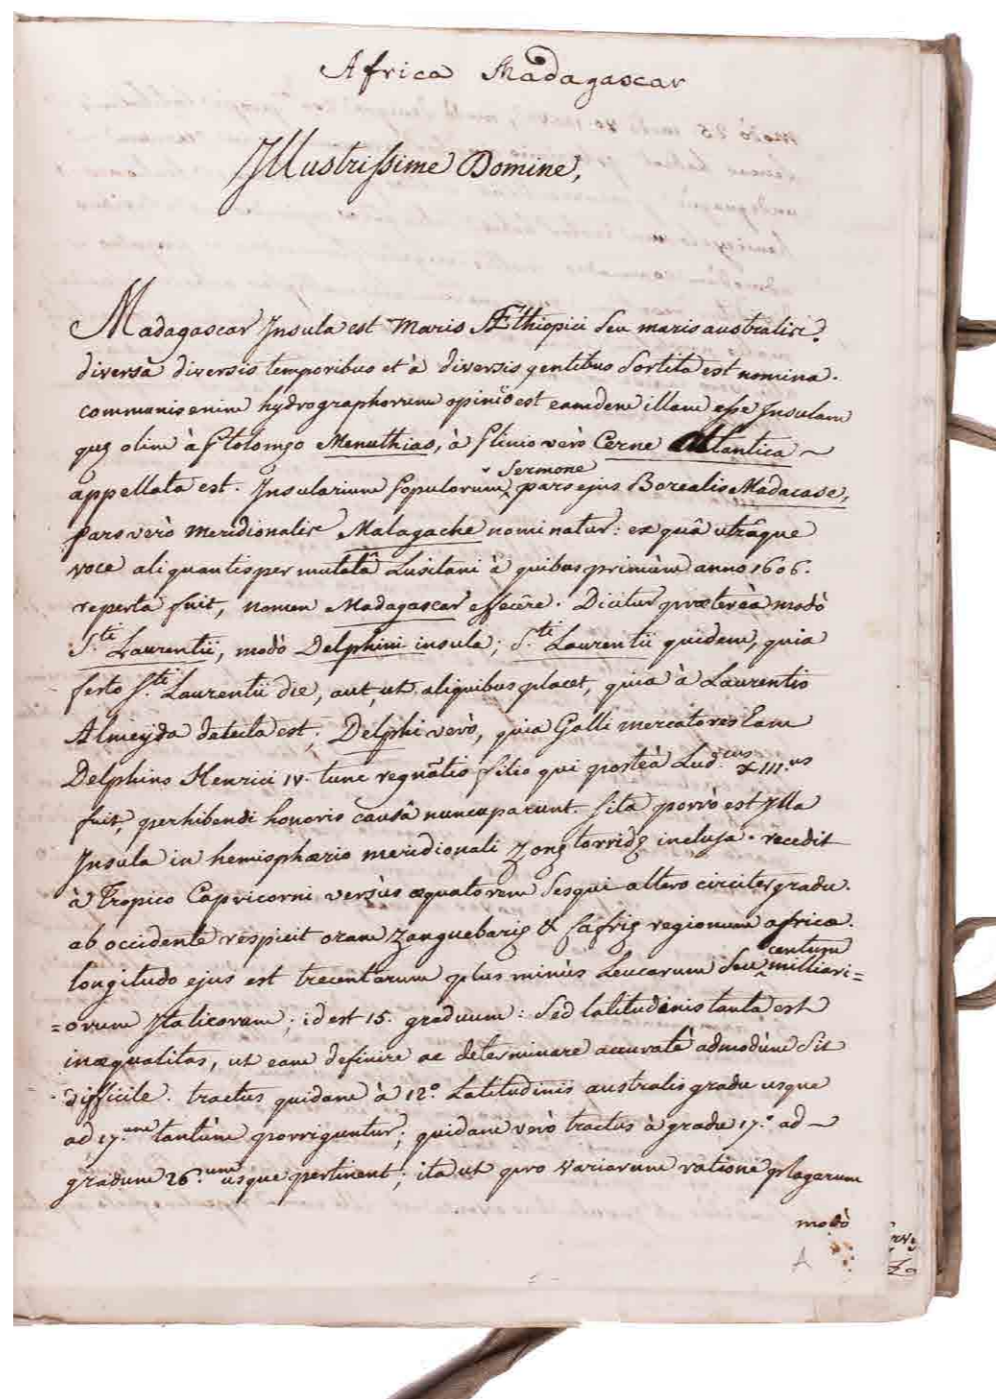 Africa Madagascar
Illustrissime Domine,
Madagascar Insula est Maris Æthiopici seu maris australis.
diversa diversis temporibus et à diversis gentibus sortita est nomina.
communis enim hydrographorum opinio est eamdem illam esse Insulam
quę olim à Ptolomęo Menuthias, à Plinio verò Cerne atlantica ~
appellata est. Insularium populorum sermone pars ejus Borealis Madacase,
pars verò meridionalis Malagache nominatur: ex quâ utrâque
voce aliquantisper mutatâ Lusitani à quibus primùm anno 1606.
reperta fuit, nomen Madagascar effecêre. Dicitur prætereà modò
S.ti Laurentii, modò Delphini insula; S.ti Laurentii quidem, quia
festo S.ti Laurentii die, aut, ut aliquibus placet, quia à Laurentio
Almeyda detecta est; Delphi verò, quia Galli mercatores Eam
Delphino Henrici IV. tunc regnãtis filio qui posteà Lud.cus XIII.us
fuit, perhibendi honoris causâ nuncuparunt. Sita porrò est Illa
Insula in hemisphærio meridionali zonę torridę inclusa. recedit
à Tropico Capricorni versùs æquatorem sesqui altero circiter gradu.
ab occidente respicit oram Zanguebarię & Cafrię regionum africæ.
longitudo ejus est trecentarum plus minùs Leucarum seu centum milliari=
=orum Italicorum; id est 15. graduum: sed latitudinis tanta est
inæqualitas, ut eam definire ac determinare accuratè admodùm sit
difficile. tractus quidam à 12.º Latitudinis australis gradu usque
ad 17.um tantùm porriguntur; quidam verò tractus à gradu 17.º ad ~
gradum 26.um usque pertinent; ita ut pro variarum ratione plagarum
modò
A